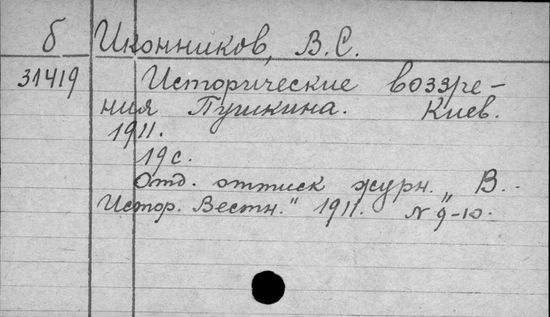 б Иконников, В.С.
31419 Исторические воззре-
ния Пушкина. Киев.
1911.
19 с.
Отд. оттиск журн. „В.
Истор. Вестн." 1911. N 9-10.